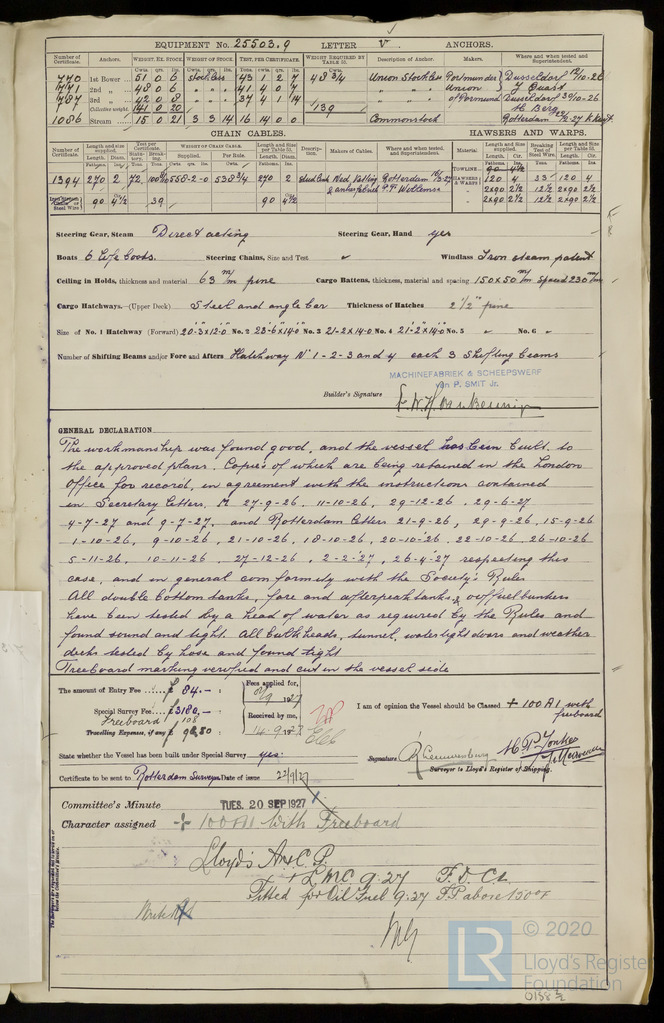 EQUIPMENT No. 25503.9 LETTER V ANCHORS.
Number of Certificate. Anchors. WEIGHT, EX. STOCK. WEIGHT OF STOCK. TEST, PER CERTIFICATE. WEIGHT REQUIRED BY TABLE 31. Description of Anchor. Makers. Where and when tested and Superintendent.
Cwts. qrs. lbs. Cwts. qrs. lbs. Tons. cwts. qrs. lbs. Cwts.
770 1st Bower 51 0 6 Stockless 43 1 2 7 48 3/4 Union Stockless Dusseldorf 12/10-26
771 2nd " 48 0 6 " " " 41 4 0 7 " " Union
787 3rd " 42 0 8 " " " 37 4 1 14 " " Dusseldorf
Collective weight 141 0 20 139
1086 Stream 15 0 21 3 3 14 16 14 0 0 Common stock Rotterdam
CHAIN CABLES. HAWSERS AND WARPS.
Number of Certificate. Length and size supplied. Test per Certificate. WEIGHT OF CHAIN CABLE. Length and size per Table 31. Description. Makers of Cables. Where and when tested, and Superintendent. Material. Length and size supplied. Breaking Test of Steel Wire. Length and size per Table 31.
Length. Diam. Supplied. Per Rule. Length. Diam. Length. Cir. Length. Cir.
TOWLINE 90 4 1/2
1394 270 2 72 558-2-0 538 3/4 270 2 Stud Link Ned Ketting Rotterdam HAWSERS & WARPS 120 4 33 120 4
2x90 2 1/2 12 1/2 2x90 2 1/2
Steel Wire 90 4 1/2 39 90 4 1/2 2x90 2 1/2 12 1/2 2x90 2 1/2
Steering Gear, Steam Direct acting Steering Gear, Hand yes
Boats 6 Life boats. Steering Chains, Size and Test Windlass Iron steam patent
Ceiling in Holds, thickness and material 63 m/m pine Cargo Battens, thickness, material and spacing 150 x 50 m/m Spaced 230 m/m
Cargo Hatchways.—(Upper Deck) Steel and angle bar Thickness of Hatches 2 1/2" pine
Size of No. 1 Hatchway (Forward) 20-3 x 12-0 No. 2 23-6 x 14-0 No. 3 21-2 x 14-0 No. 4 21-2 x 14-0 No. 5 No. 6
Number of Shifting Beams and/or Fore and Afters Hatchway No 1-2-3 and 4 each 3 shifting beams
MACHINEFABRIEK & SCHEEPSWERF
van P. SMIT Jr.
Builder's Signature
GENERAL DECLARATION
The workmanship was found good, and the vessel has been built to
the approved plans. Copies of which are being retained in the London
Office for record, in agreement with the instructions contained
in Secretary letters, M 27-9-26, 11-10-26, 29-12-26, 29-6-27
4-7-27 and 9-7-27, and Rotterdam letters 21-9-26, 29-9-26, 15-9-26
1-10-26, 9-10-26, 21-10-26, 18-10-26, 20-10-26, 22-10-26, 26-10-26
5-11-26, 10-11-26, 27-12-26, 2-2-27, 26-4-27 respecting this
case, and in general conformity with the Society's Rules
All double bottom tanks, fore and after peak tanks, & oil fuel bunkers
have been tested by a head of water as required by the Rules and
found sound and tight. All bulkheads, tunnel, watertight doors and weather
decks tested by hose and found tight
Freeboard marking verified and cut in the vessel side
The amount of Entry Fee £ 84.- : Fees applied for,
Special Survey Fee £ 3180.- : 1927 I am of opinion the Vessel should be Classed + 100A1 with freeboard
Freeboard 108 Received by me,
Travelling Expenses, if any £ 14.9.1927
State whether the Vessel has been built under Special Survey yes. Signature
Surveyor to Lloyd's Register of Shipping.
Certificate to be sent to Rotterdam Surveyors Date of issue 22/9/27
Committee's Minute TUES. 20 SEP 1927
Character assigned + 100A1 With Freeboard
Lloyd's A & C.P.
+ LMC 9.27 F.D. CL
Fitted for Oil Fuel 9.27 F.P. above 150°F
LR
© 2020
Lloyd's Register
Foundation